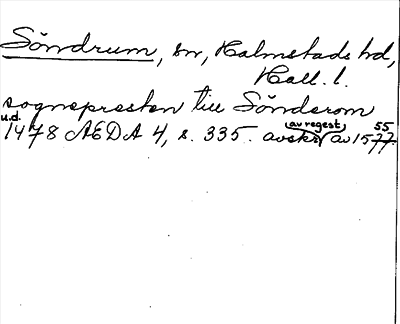 Söndrum, sn, Halmstads hd,
Hall. l.
sognepresten till Sönderom
u.d. 1478 AEDA 4, s. 335. avskr (av regest) av 1577. 55